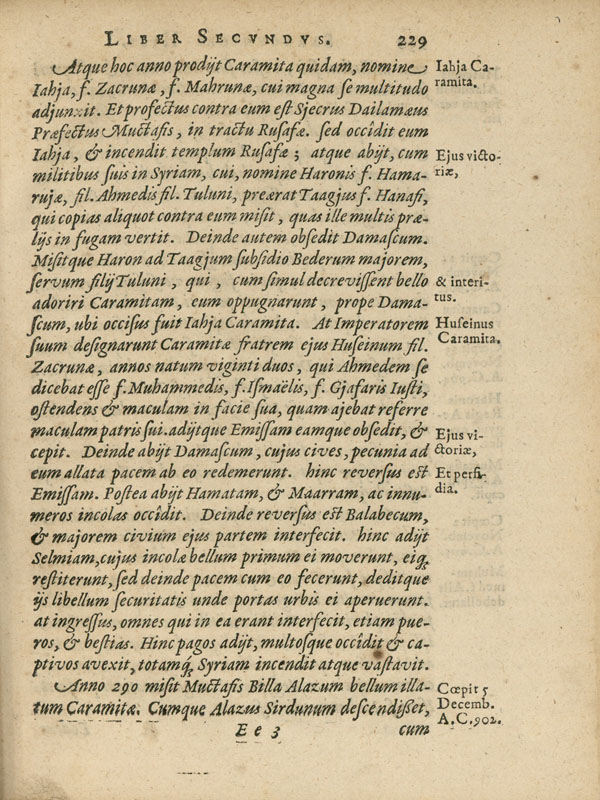 LIBER SECVNDVS. 229
Atque hoc anno prodijt Caramita quidam, nomine
Iahja, f. Zacrunæ, f. Mahrunæ, cui magna se multitudo
adjunxit. Et profectus contra eum est Sjecrus Dailamæus
Præfectus Muctafis, in tractu Rusafæ. sed occîdit eum
Iahja, & incendit templum Rusafæ; atque abijt, cum
militibus suis in Syriam, cui, nomine Haronis f. Hama-
rujæ, fil. Ahmedis fil. Tuluni, preærat Taagjus f. Hanafi,
qui copias aliquot contra eum misit, quas ille multis præ-
lijs in fugam vertit. Deinde autem obsedit Damascum.
Misitque Haron ad Taagjum subsidio Bederum majorem,
servum filij Tuluni, qui, cum simul decrevissent bello
adoriri Caramitam, eum oppugnarunt, prope Dama-
scum, ubi occisus fuit Iahja Caramita. At Imperatorem
suum designarunt Caramitæ fratrem ejus Huseinum fil.
Zacrunæ, annos natum viginti duos, qui Ahmedem se
dicebat esse f. Muhammedis, f. Ismaëlis, f. Gjafaris Iusti,
ostendens & maculam in facie sua, quam ajebat referre
maculam patris sui. adijtque Emissam eamque obsedit, &
cepit. Deinde abijt Damascum, cujus cives, pecunia ad
eum allata pacem ab eo redemerunt. hinc reversus est
Emissam. Postea abijt Hamatam, & Maarram, ac innu-
meros incolas occîdit. Deinde reversus est Balabecum,
& majorem civium ejus partem interfecit. hinc adijt
Selmiam, cujus incolæ bellum primum ei moverunt, eiq;
restiterunt, sed deinde pacem cum eo fecerunt, deditque
ijs libellum securitatis unde portas urbis ei aperuerunt.
at ingressus, omnes qui in ea erant interfecit, etiam pue-
ros, & bestias. Hinc pagos adijt, multosque occîdit & ca-
ptivos avexit, totamq; Syriam incendit atque vastavit.
Anno 290 misit Muctafis Billa Alazum bellum illa-
tum Caramitæ. Cumque Alazus Sirdunum descendisset,
E e 3 cum
Iahja Ca-
ramita.
Ejus victo-
riæ,
& interi-
tus.
Huseinus
Caramita.
Ejus vi-
ctoriæ,
Et perfi-
dia.
Cœpit 5
Decemb.
A.C. 902.